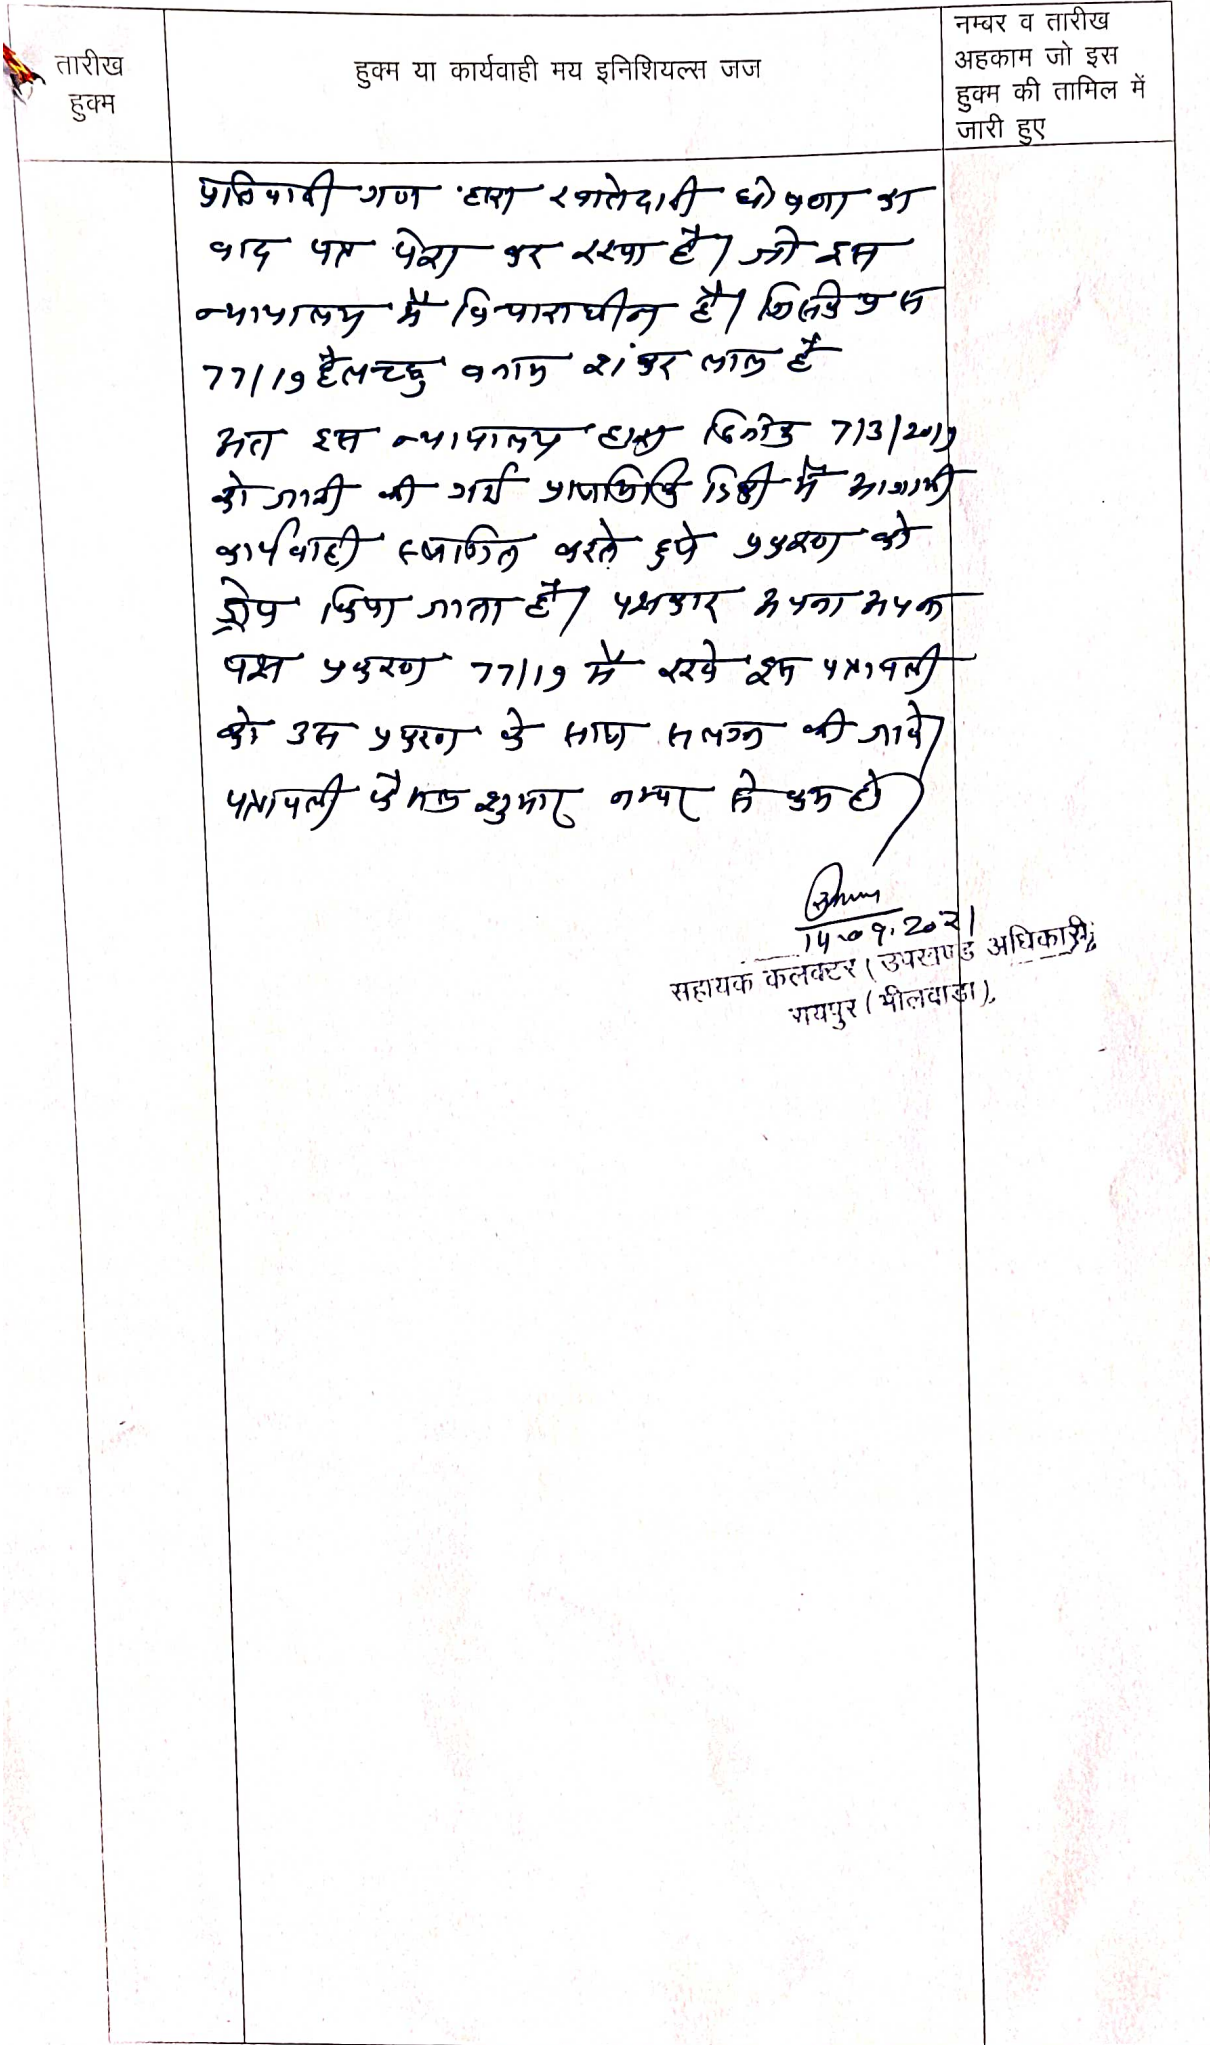 तारीख
हुक्म
हुक्म या कार्यवाही मय इनिशियल्स जज
नम्बर व तारीख
अहकाम जो इस
हुक्म की तामिल में
जारी हुए
प्रतिवादी गण द्वारा खातेदारी घोषणा का
वाद पत्र पेश कर रखा है। जो इस
न्यायालय में विचाराधीन है। जिसके प्र स
77/19 है लच्छु बनाम शंकर लाल है
अत इस न्यायालय द्वारा दिनांक 7/3/2019
को जारी की गयी डिक्री में आगामी
कार्यवाही स्थगित करते हुये प्रकरण को
ड्रोप किया जाता है। पक्षकार अपना अपना
पक्ष प्रकरण 77/19 में रखे इस पत्रावली
को उस प्रकरण के साथ सलग्न की जावे।
पत्रावली फैसल शुमार नम्बर से कम हो।
14.09.2021
सहायक कलक्टर (उपखण्ड अधिकारी)
रायपुर (भीलवाडा)